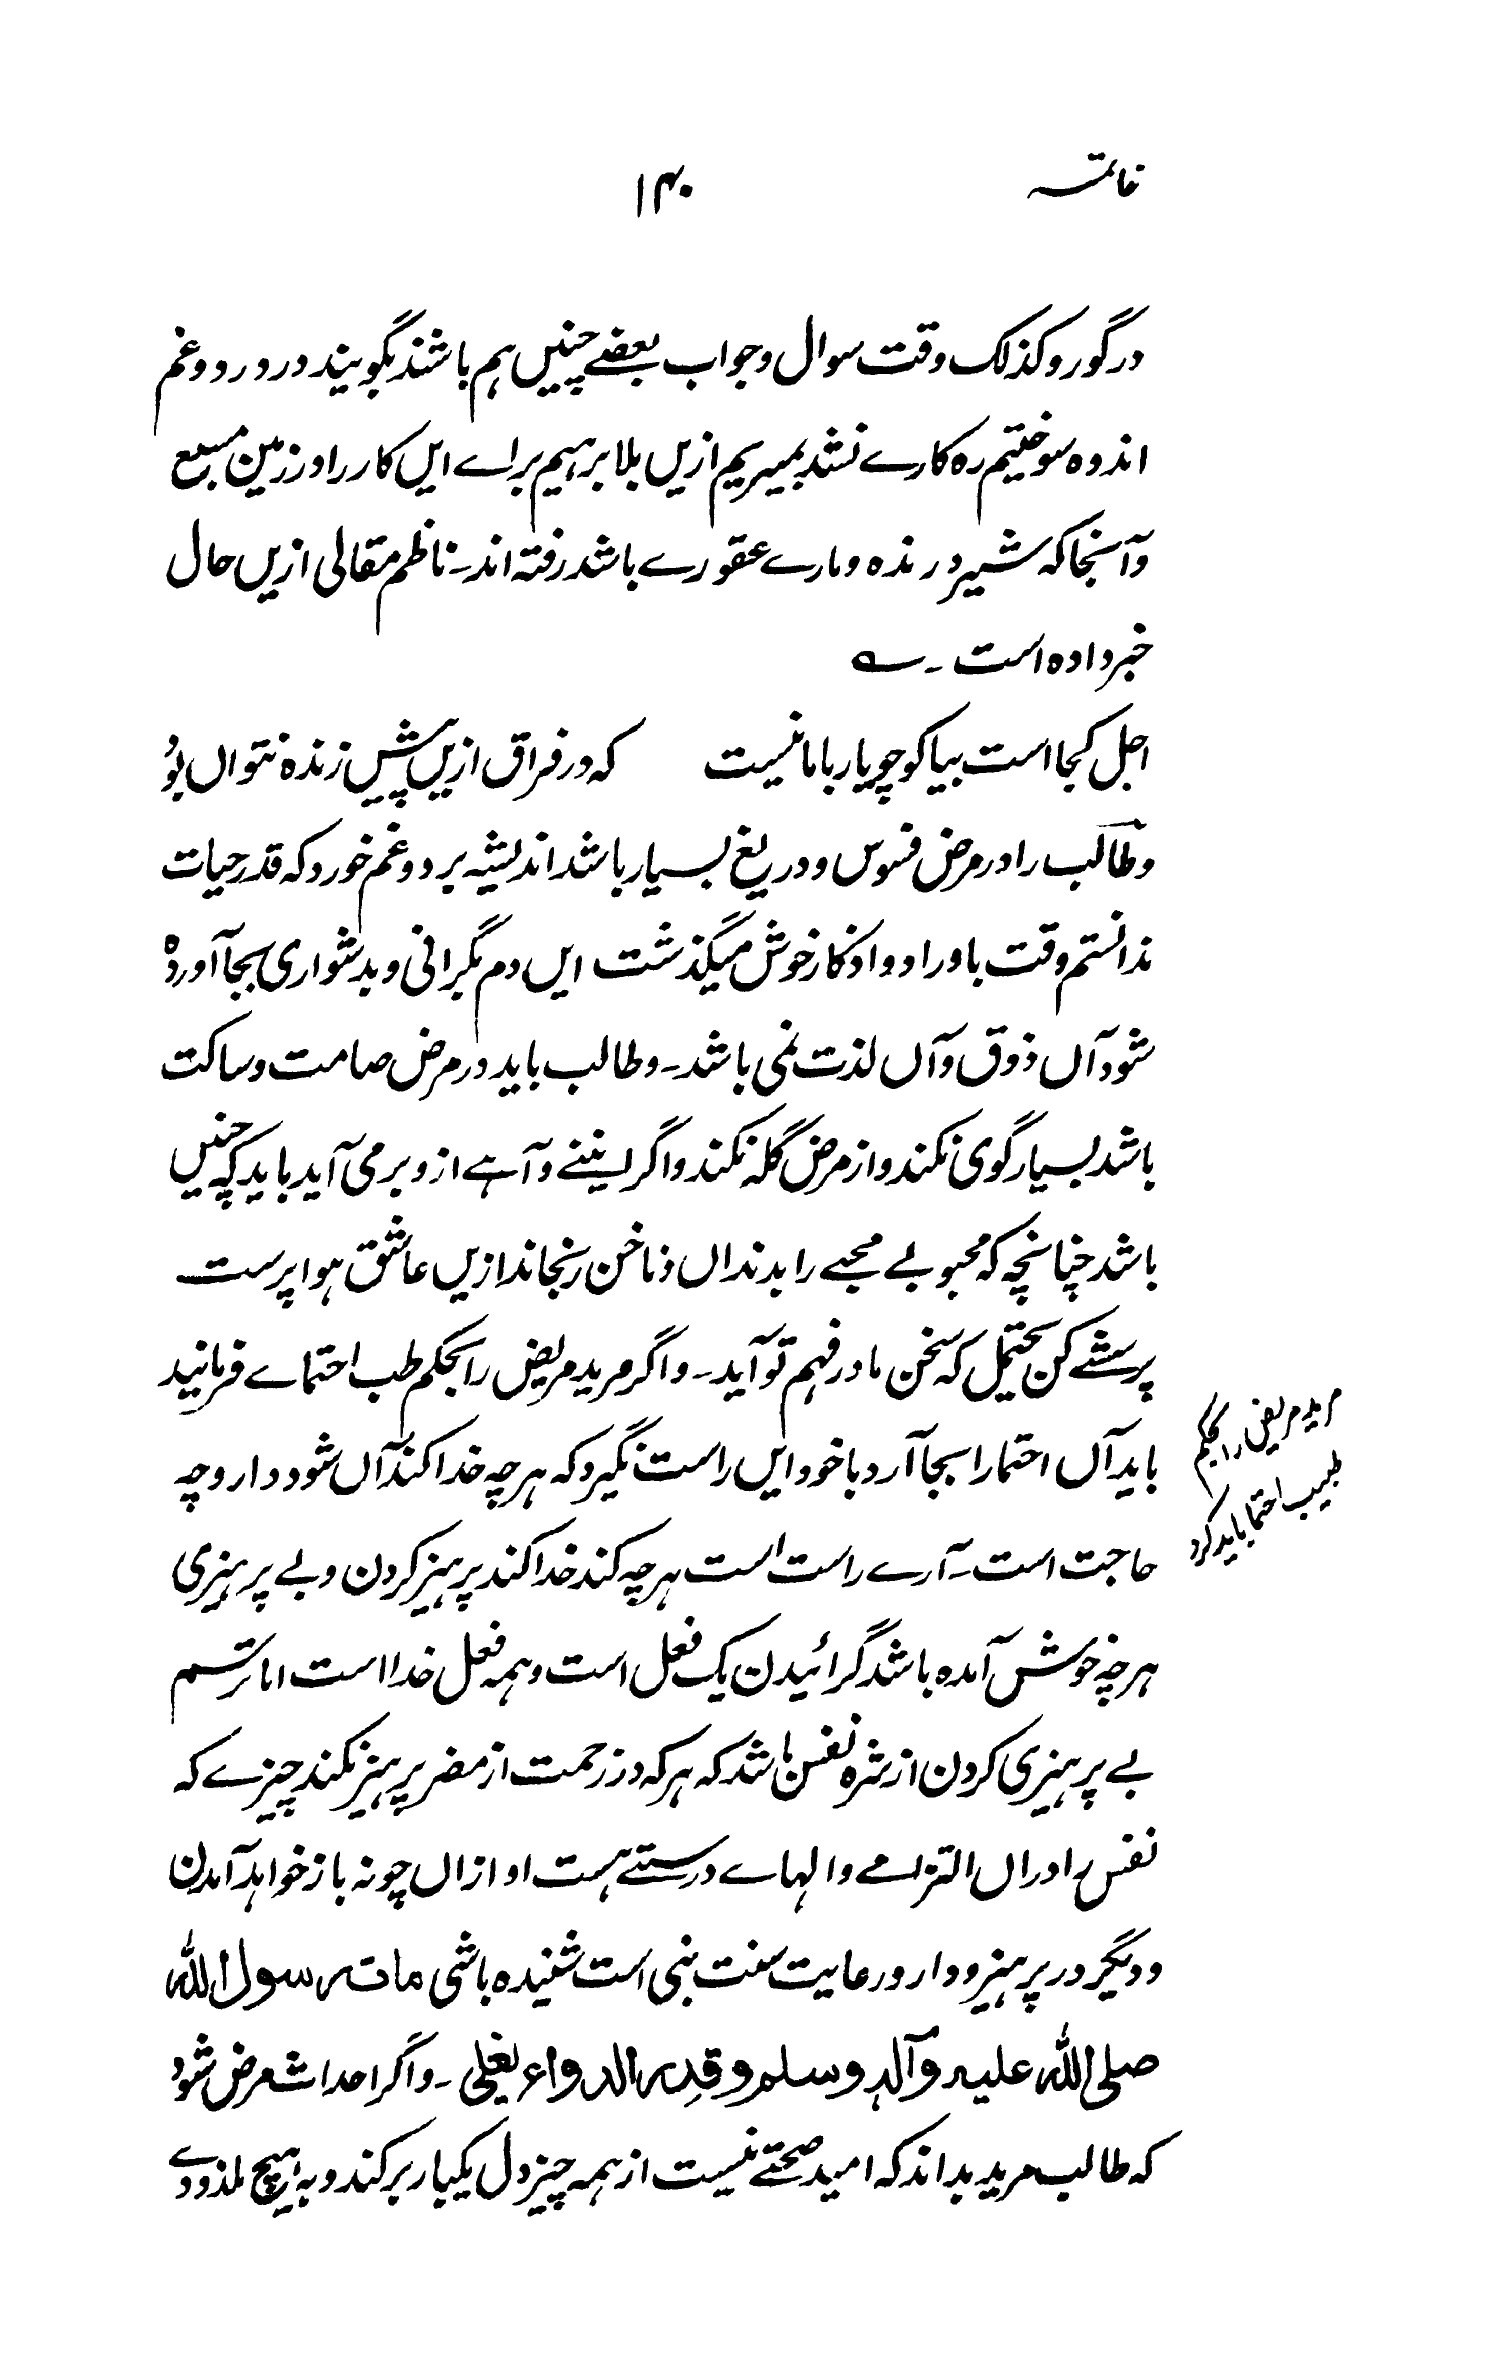 خاتمہ ۱۴۰
در گور و کذلک وقت سوال و جواب بعضے چنیں ہم باشند بگویند در درد و غم
اندوہ سوختیم رہ کارے نشد بمیریم ازیں بلا برہیم براے ایں کار را در زمین مسبع
و آنجا کہ شیر درندہ و مارے عقورے باشد رفتہ اند۔ ناظم مقالی ازیں حال
خبر دادہ است ۔ ؎
اجل کجا است بیا گو چو یار با ما نیست کہ در فراق ازیں پیش زندہ نتواں بود
و طالب را در مرض فسوس و دریغ بسیار باشد اندیشہ برد و غم خورد کہ قدر حیات
ندانستم وقت باوراد و اذکار خوش میگذشت ایں دم بگرانی و بدشواری بجا آوردہ
شود آں ذوق و آں لذت نمی باشد۔ و طالب باید در مرض صامت و ساکت
باشد بسیار گوی نکند و از مرض گلہ نکند و اگر انینے و آہے ازو بر می آید باید کہ چنیں
باشد چنانچہ کہ محبوبے محبے را بدنداں و ناخن رنجاند ازیں عاشق ہوا پرست
پرسشے کن یحتمل کہ سخن ما در فہم تو آید۔ و اگر مرید مریض را بحکم طب احتماے فرمانید
باید آں احتما را بجا آرد با خود ایں راست نگیرد کہ ہر چہ خدا کند آں شود دارو چہ
مرید مریض را بحکم
طبیب احتما باید کرد
حاجت است۔ آرے راست است ہر چہ کند خدا کند پرہیز کردن و بے پرہیزی
ہر چہ خوش آمدہ باشد گرائیدن یک فعل است و ہمہ فعل خدا است اما ترسم
بے پرہیزی کردن از شرہ نفس باشد کہ ہر کہ در زحمت از مضر پرہیز نکند چیزے کہ
نفس را دراں التزامے و الہاے درستے ہست او ازاں چونہ باز خواہد آمدن
و دیگر در پرہیز و دارو رعایت سنت نبی است شنیدہ باشی مات رسول اللہ
صلی اللہ علیہ وآلہ وسلم وقدر الدواء یغلی ۔ و اگر احداث مرض شود
کہ طالب مرید بداند کہ امید صحتے نیست از ہمہ چیز دل یکبار بر کند و بہ ہیچ